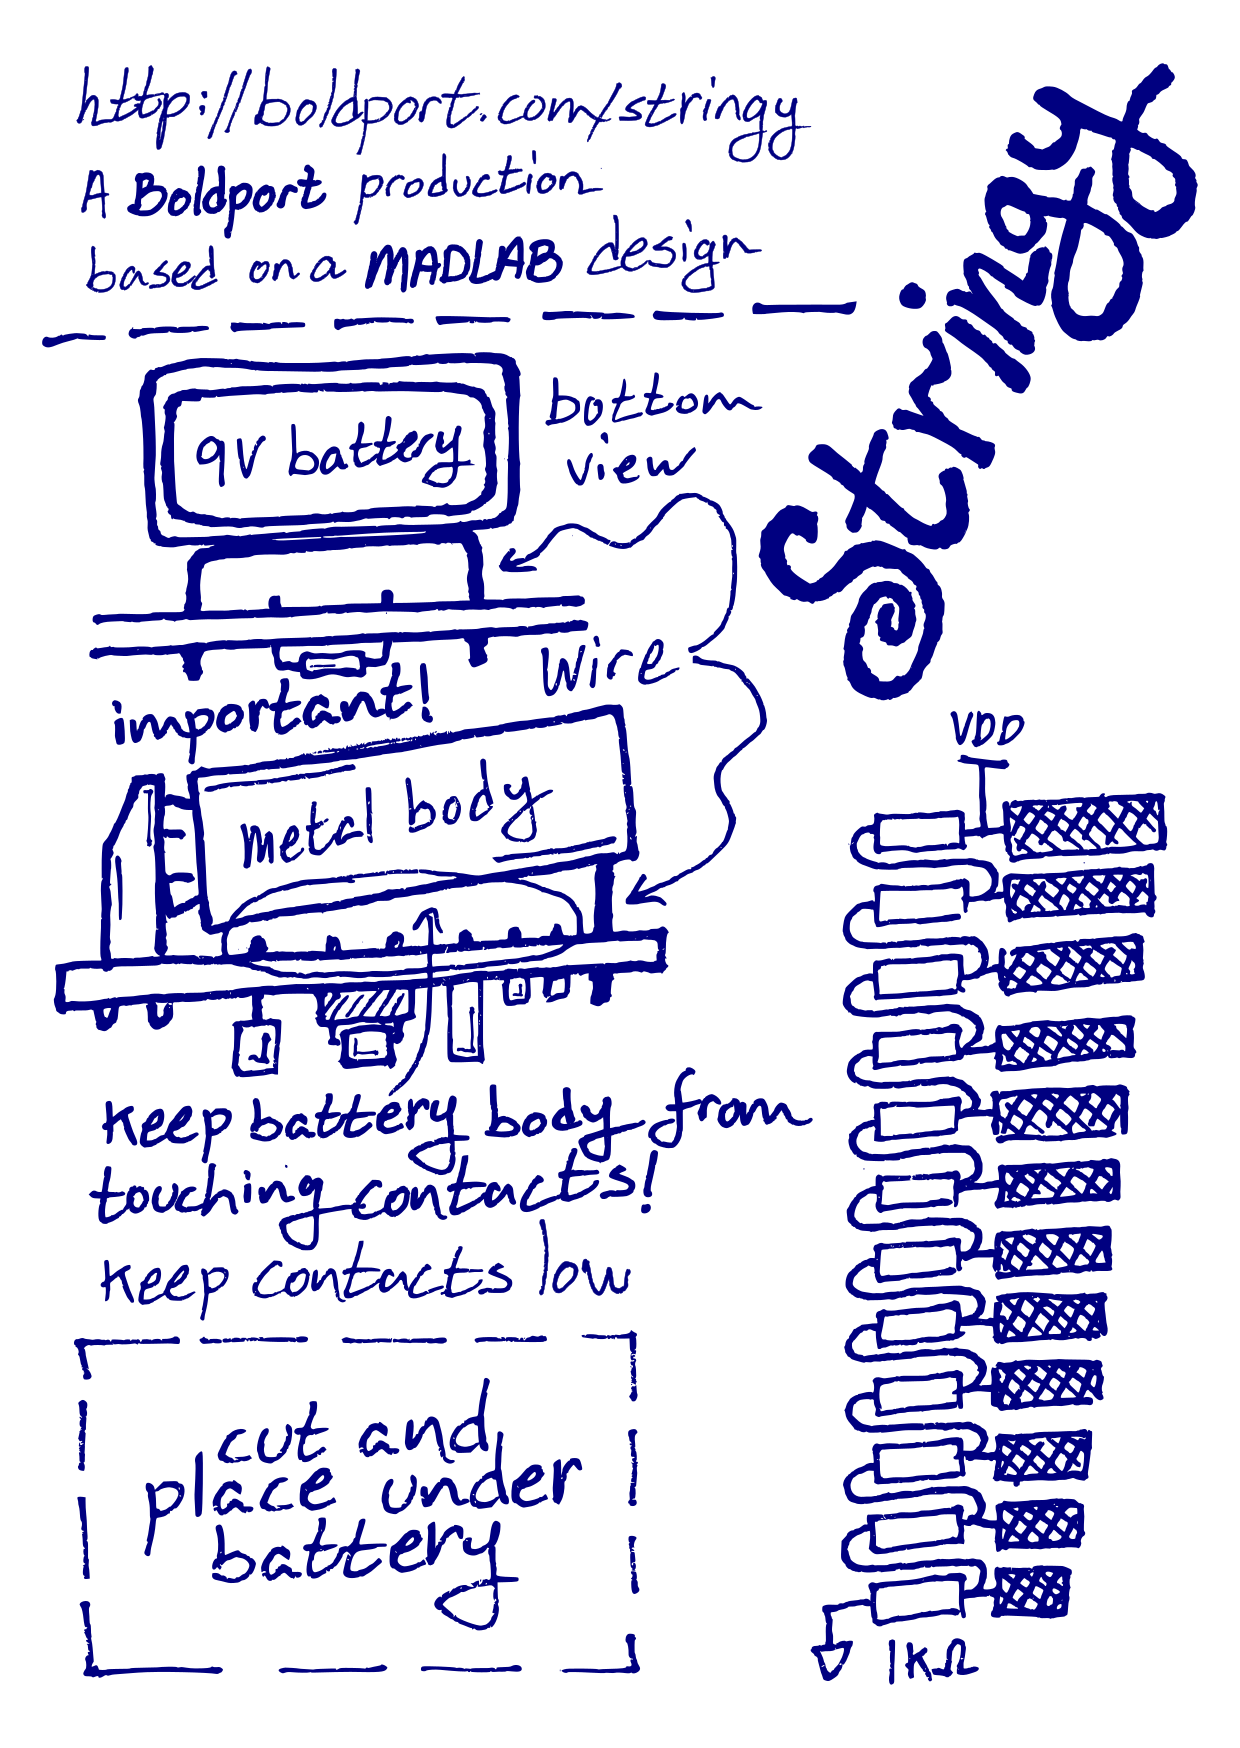 http://boldport.com/stringy
A Boldport production
based on a MADLAB design
Stringy
9V battery
bottom
view
wire
important!
metal body
keep battery body from
touching contacts!
keep contacts low
cut and
place under
battery
VDD
1KΩ